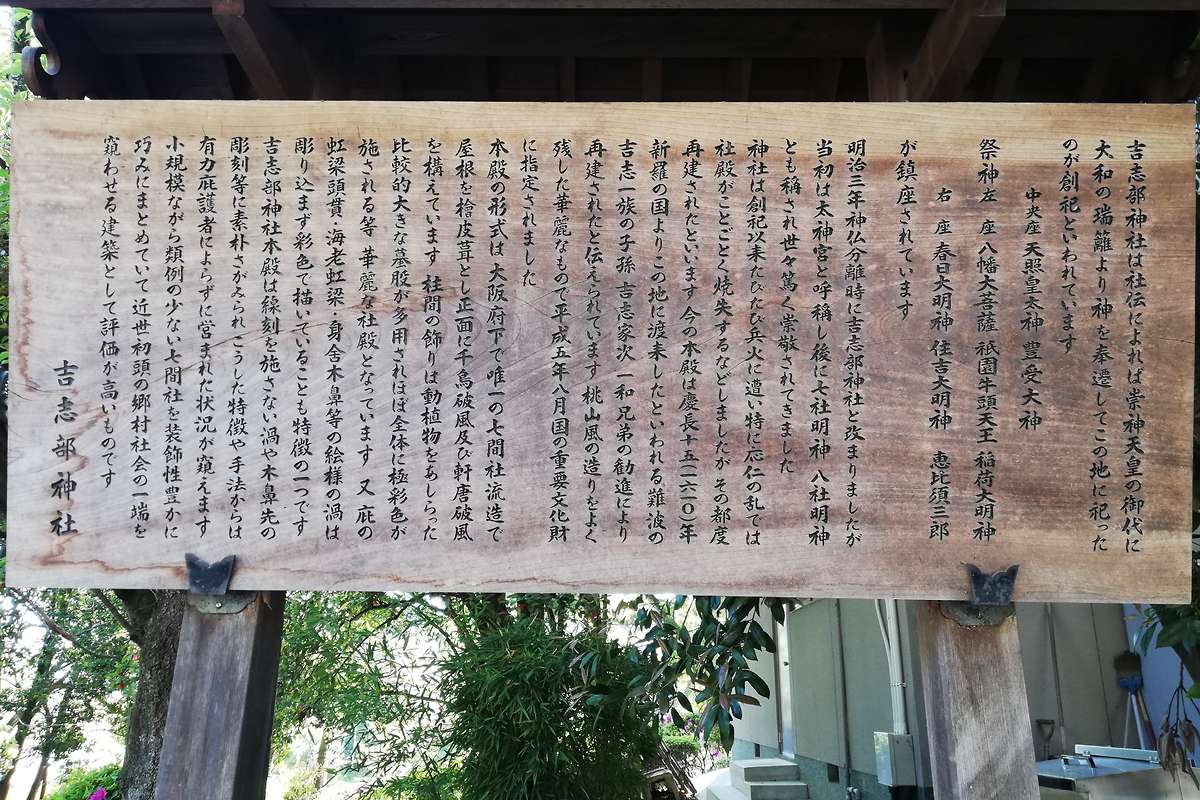 吉志部神社は社伝によれば崇神天皇の御代に
大和の瑞籬より神を奉遷してこの地に祀った
のが創祀といわれています
中央座 天照皇大神 豊受大神
祭神 左 座 八幡大菩薩 祇園牛頭天王 稲荷大明神
右 座 春日大明神 住吉大明神 恵比須三郎
が鎮座されています
明治三年神仏分離時に吉志部神社と改まりましたが
当初は太神宮と呼称し後に七社明神 八社明神
とも称され世々篤く崇敬されてきました
神社は創祀以来たびたび兵火に遭い特に応仁の乱では
社殿がことごとく焼失するなどしましたがその都度
再建されたといいます今の本殿は慶長十五(一六一〇)年
新羅の国よりこの地に渡来したといわれる難波の
吉志一族の子孫 吉志家次 一和兄弟の勧進により
再建されたと伝えられています 桃山風の造りをよく
残した華麗なもので平成五年八月国の重要文化財
に指定されました
本殿の形式は大阪府下で唯一の七間社流造で
屋根を檜皮葺とし正面に千鳥破風及び軒唐破風
を構えています 柱間の飾りは動植物をあしらった
比較的大きな蟇股が多用されほぼ全体に極彩色が
施される等 華麗な社殿となっています 又 庇の
虹梁頭貫・海老虹梁・身舎木鼻等の絵様の渦は
彫り込まず彩色で描いていることも特徴の一つです
吉志部神社本殿は線刻を施さない渦や木鼻先の
彫刻等に素朴さがみられこうした特徴や手法からは
有力庇護者によらずに営まれた状況が窺えます
小規模ながら類例の少ない七間社を装飾性豊かに
巧みにまとめていて近世初頭の郷村社会の一端を
窺わせる建築として評価が高いものです
吉志部神社